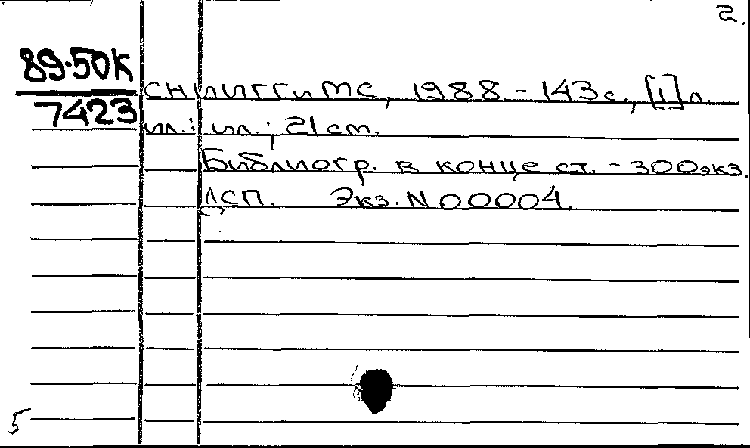 2.
89-50К
7423
СНИИГГиМС, 1988 - 143 с., [1] л.
ил.: ил.; 21 см.
Библиогр. в конце ст. - 300 экз.
ДСП. Экз. N 00004.
5